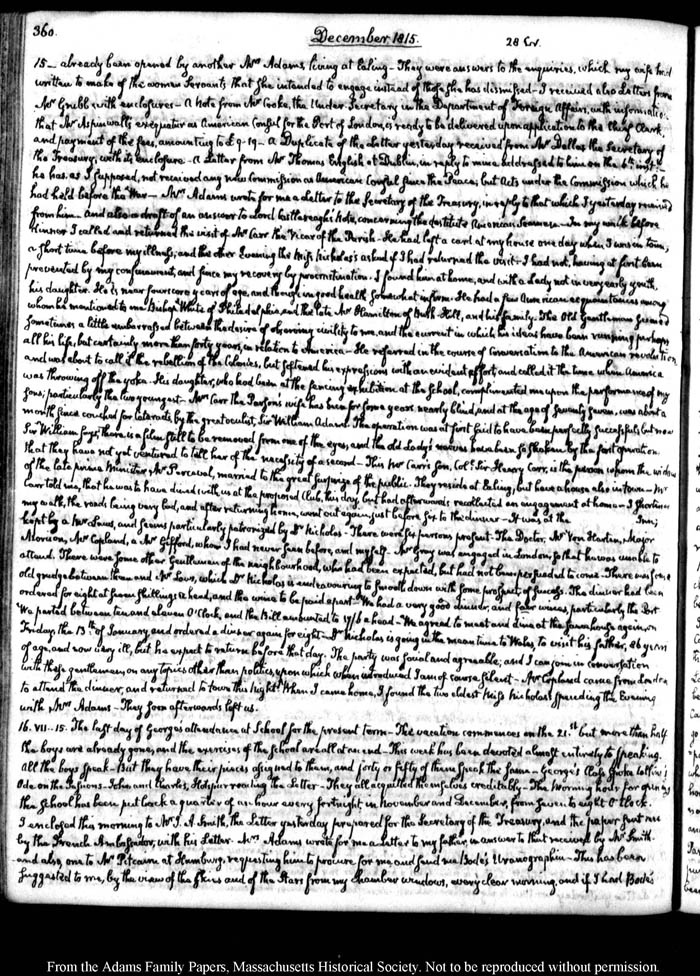 360.
December 1815.
28 Ev.
15— already been opened by another Mrs Adams, living at Ealing— They were answers to the enquiries, which my wife had
written to make of the women Servants that she intended to engage instead of those she has dismissed— I received also Letters from
Mr Grubb with enclosures— A Note from Mr Cooke, the Under Secretary in the Department of Foreign Affairs, with information
that Mr Aspinwall's exequatur as American Consul for the Port of London, is ready to be delivered upon application to the Chief Clerk
and payment of the fees, amounting to £9-19— A Duplicate of the Letter yesterday received from Mr Dallas the Secretary of
the Treasury, with its enclosure— A Letter from Mr Thomas English at Dublin, in reply to mine addressed to him on the 6th instt—
he has as I supposed, not received any new Commission as American Consul since the Peace; but Acts under the Commission which he
had held before the War— Mrs Adams wrote for me a Letter to the Secretary of the Treasury, in reply to that which I yesterday received
from him— and also a draft of an answer to Lord Castlereagh's Note, concerning the destitute American Seamen— In my walk before
dinner I called and returned the visit of Mr Carr the Vicar of the Parish— He had left a card at my house one day when I was in town,
a short time before my illness; and the other Evening the Miss Nicholas's asked if I had returned the visit— I had not, having at first been
prevented by my confinement, and since my recovery by procrastination— I found him at home, and with a Lady not in very early youth,
his daughter. He is near fourscore years of age, and though in good health somewhat infirm. He had a few American acquaintances among
whom he mentioned to me Bishop White of Philadelphia and the late Mr Hamilton of Bush Hill, and his family. The Old Gentleman seemed
sometimes a little embarrassed between the desire of observing civility to me, and the current in which his ideas have been running perhaps
all his life, but certainly more than forty years, in relation to America— He referred in the course of Conversation to the American revolution,
and was about to call it the rebellion of the Colonies, but softened his expressions with an evident effort, and called it the time when America
was throwing off the yoke. His daughter, who had been at the fencing exhibition at the School, complimented me upon the performance of my
Sons, particularly the two youngest— Mrs Carr the Parson's wife has been for some years nearly blind, and at the age of seventy seven, was about a
month since couched for Cataracts by the great oculist, Sir William Adams. The operation was at first said to have been perfectly successful, but now
Sir William says, there is a film still to be removed from one of the eyes, and the old Lady's nerves have been so shaken by the first operation
that they have not yet ventured to tell her of the necessity of a second— This Mr Carr's Son, Coll Sir Henry Carr, is the person whom the widow
of the late prime Minister, Mr Perceval, married to the great surprize of the public. They reside at Ealing, but have a house also in town— Mr
Carr told me, that he was to have dined with us at the proposed Club, this day, but had afterwards recollected an engagement at home— I shortened
my walk, the roads being very bad, and after returning home, went out again just before six to the dinner— It was at the Inn;
kept by a Mr Laws, and seems particularly patronized by Dr Nicholas— There were six persons present. The Doctor, Mr Von Harten, Major
Morrison, Mr Copland, a Mr Gifford, whom I had never seen before, and myself. Mr Gray was engaged in London, so that he was unable to
attend. There were some other Gentlemen of the neighbourhood, who had been expected, but had not been persuaded to come. There was some
old grudge between them and Mr Laws, which Dr Nicholas is endeavouring to smooth down with some prospect of success. The dinner had been
ordered for eight at seven shillings a head, and the wine to be paid apart— We had a very good dinner, and fair wines, particularly the Port
We parted between ten and eleven O'Clock, and the Bill amounted to 17/6 a head— We agreed to meet and dine at the same house again, on
Friday the 13th of January, and ordered a dinner again for eight— Dr Nicholas is going in the mean time to Wales, to visit his father, 86 years
of age, and now very ill, but he expects to return before that day. The party was social and agreeable; and I can join in conversation
with these gentlemen on any topics other than politics, upon which when introduced I am of course silent— Mr Copland came from London
to attend the dinner, and returned to town this Night. When I came home, I found the two eldest Miss Nicholas's spending the Evening
with Mrs Adams— They soon afterwards left us.
16. VII..15. The last day of George's attendance at School for the present term— The vacation commences on the 21st but more than half
the boys are already gone, and the exercises of the School are all at an end— This week has been devoted almost entirely to speaking.
All the boys speak— But they have their pieces assigned to them, and forty or fifty of them speak the same— George's Class spoke Collins's
Ode on the Passions— John and Charles, Hotspur reading the Letter— They all acquitted themselves creditably— The Morning hour for opening
the School has been put back a quarter of an hour every fortnight, in November and December, from seven to eight O'Clock.
I enclosed this morning to Mr J. A. Smith, the Letter yesterday prepared for the Secretary of the Treasury, and the paper sent me
by the French Ambassador, with his Letter. Mrs Adams wrote for me a Letter to my father, in answer to that received by Mr Smith.
and also, one to Mr Pitcairn at Hamburg, requesting him to procure for me and send me Bode's Uranographia— This has been
suggested to me, by the view of the skies and of the Stars from my chamber windows, every clear morning, and if I had Bode's
From the Adams Family Papers, Massachusetts Historical Society. Not to be reproduced without permission.